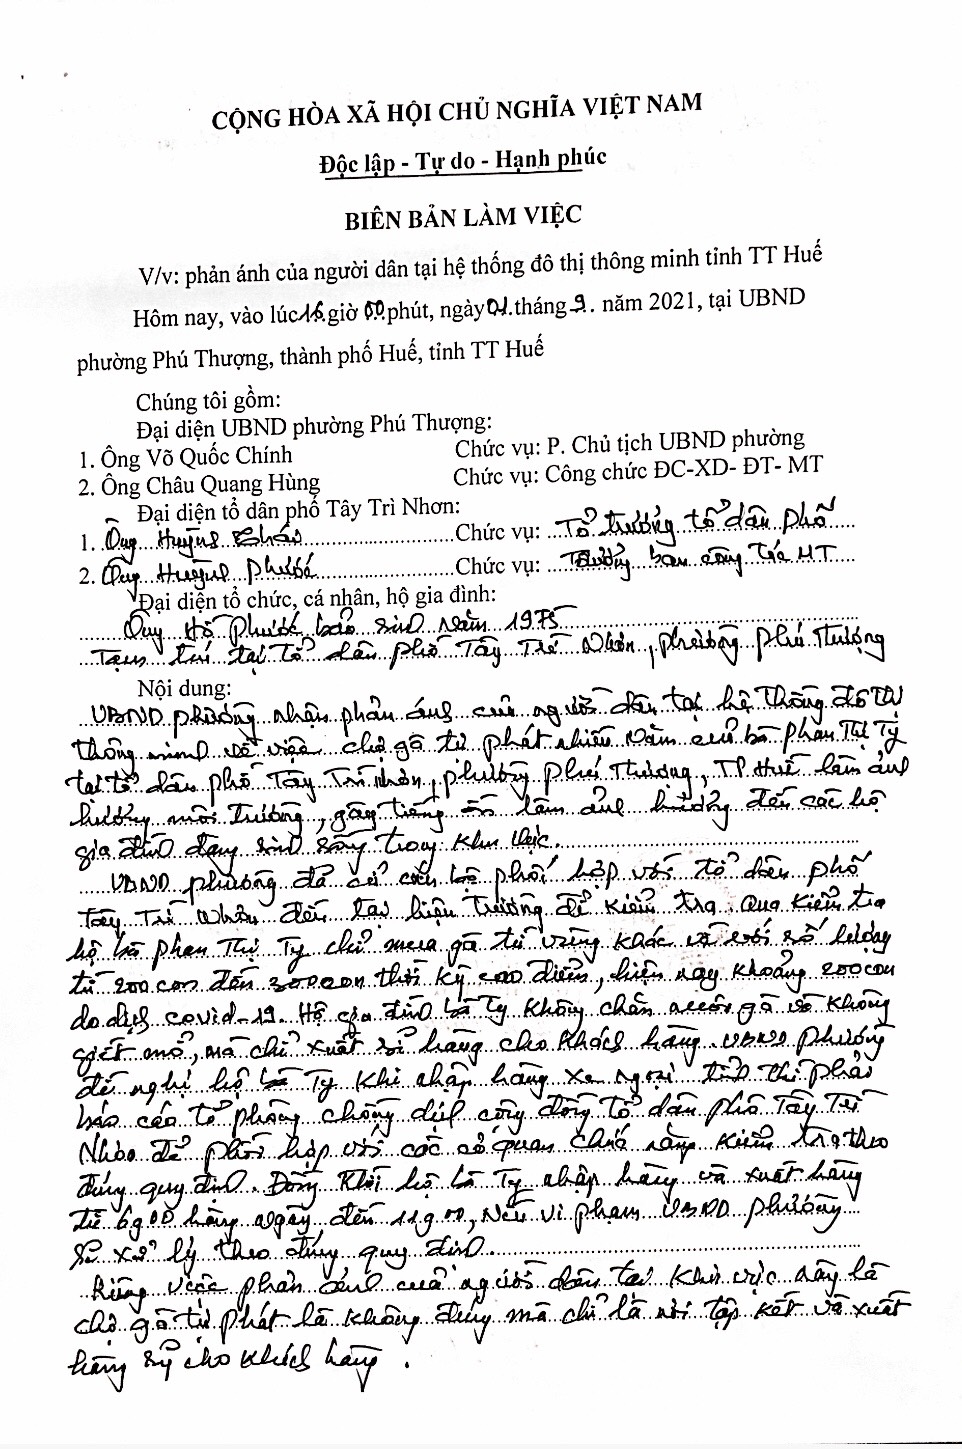 CỘNG HÒA XÃ HỘI CHỦ NGHĨA VIỆT NAM
Độc lập - Tự do - Hạnh phúc
BIÊN BẢN LÀM VIỆC
V/v: phản ánh của người dân tại hệ thống đô thị thông minh tỉnh TT Huế
Hôm nay, vào lúc 16 giờ 00 phút, ngày 01 tháng 9. năm 2021, tại UBND
phường Phú Thượng, thành phố Huế, tỉnh TT Huế
Chúng tôi gồm:
Đại diện UBND phường Phú Thượng:
1. Ông Võ Quốc Chính Chức vụ: P. Chủ tịch UBND phường
2. Ông Châu Quang Hùng Chức vụ: Công chức ĐC-XD- ĐT- MT
Đại diện tổ dân phố Tây Trì Nhơn:
1. Ông Huỳnh Chức vụ: Tổ trưởng tổ dân phố
2. Ông Huỳnh Phước Chức vụ: Trưởng ban công tác MT
Đại diện tổ chức, cá nhân, hộ gia đình:
Ông Hồ Phước Bảo sinh năm 1975
Tạm trú tại tổ dân phố Tây Trì Nhơn, phường Phú Thượng
Nội dung:
UBND phường nhận phản ánh của người dân tại hệ thống đô thị
thông minh về việc chợ gà tự phát nhiều năm của bà Phan Thị Ty
tại tổ dân phố Tây Trì Nhơn, phường Phú Thượng, TP Huế làm ảnh
hưởng môi trường, gây tiếng ồn làm ảnh hưởng đến các hộ
gia đình đang sinh sống trong khu vực.
UBND phường đã cử cán bộ phối hợp với tổ dân phố
Tây Trì Nhơn đến tại hiện trường để kiểm tra. Qua kiểm tra
hộ bà Phan Thị Ty chỉ mua gà từ vùng khác về với số lượng
từ 200 con đến 300 con thời kỳ cao điểm, hiện nay khoảng 200 con
do dịch covid-19. Hộ gia đình bà Ty không chăn nuôi gà và không
giết mổ, mà chỉ xuất sỉ hàng cho khách hàng. UBND phường
đề nghị hộ bà Ty khi nhập hàng xe ngoại tỉnh thì phải
báo cáo tổ phòng chống dịch cộng đồng tổ dân phố Tây Trì
Nhơn để phối hợp với các cơ quan chức năng kiểm tra theo
đúng quy định. Đồng thời hộ bà Ty nhập hàng và xuất hàng
từ 6g00 hàng ngày đến 11g00, Nếu vi phạm UBND phường
sẽ xử lý theo đúng quy định.
Riêng việc phản ánh của người dân tại khu vực này là
chợ gà tự phát là không đúng mà chỉ là nơi tập kết và xuất
hàng sỷ cho khách hàng.